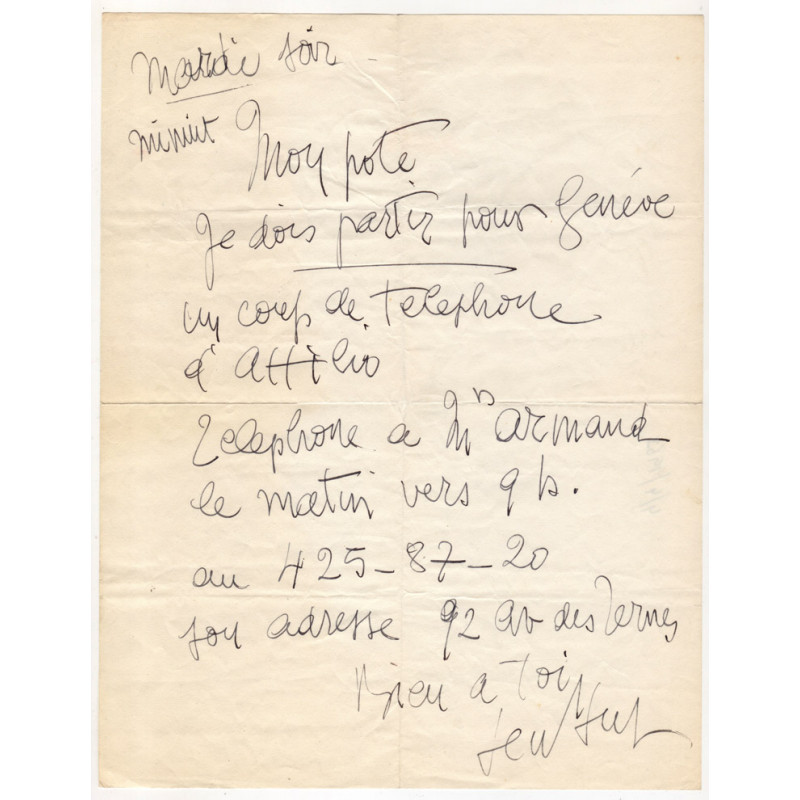 Mardi soir
minuit
Mon pote
Je dois partir pour Genéve
un coup de telephone
à Attilio
Telephone a Mr Armand
le matin vers 9 h.
au 425-87-20
son adresse 92 av des Ternes
Bien a toi